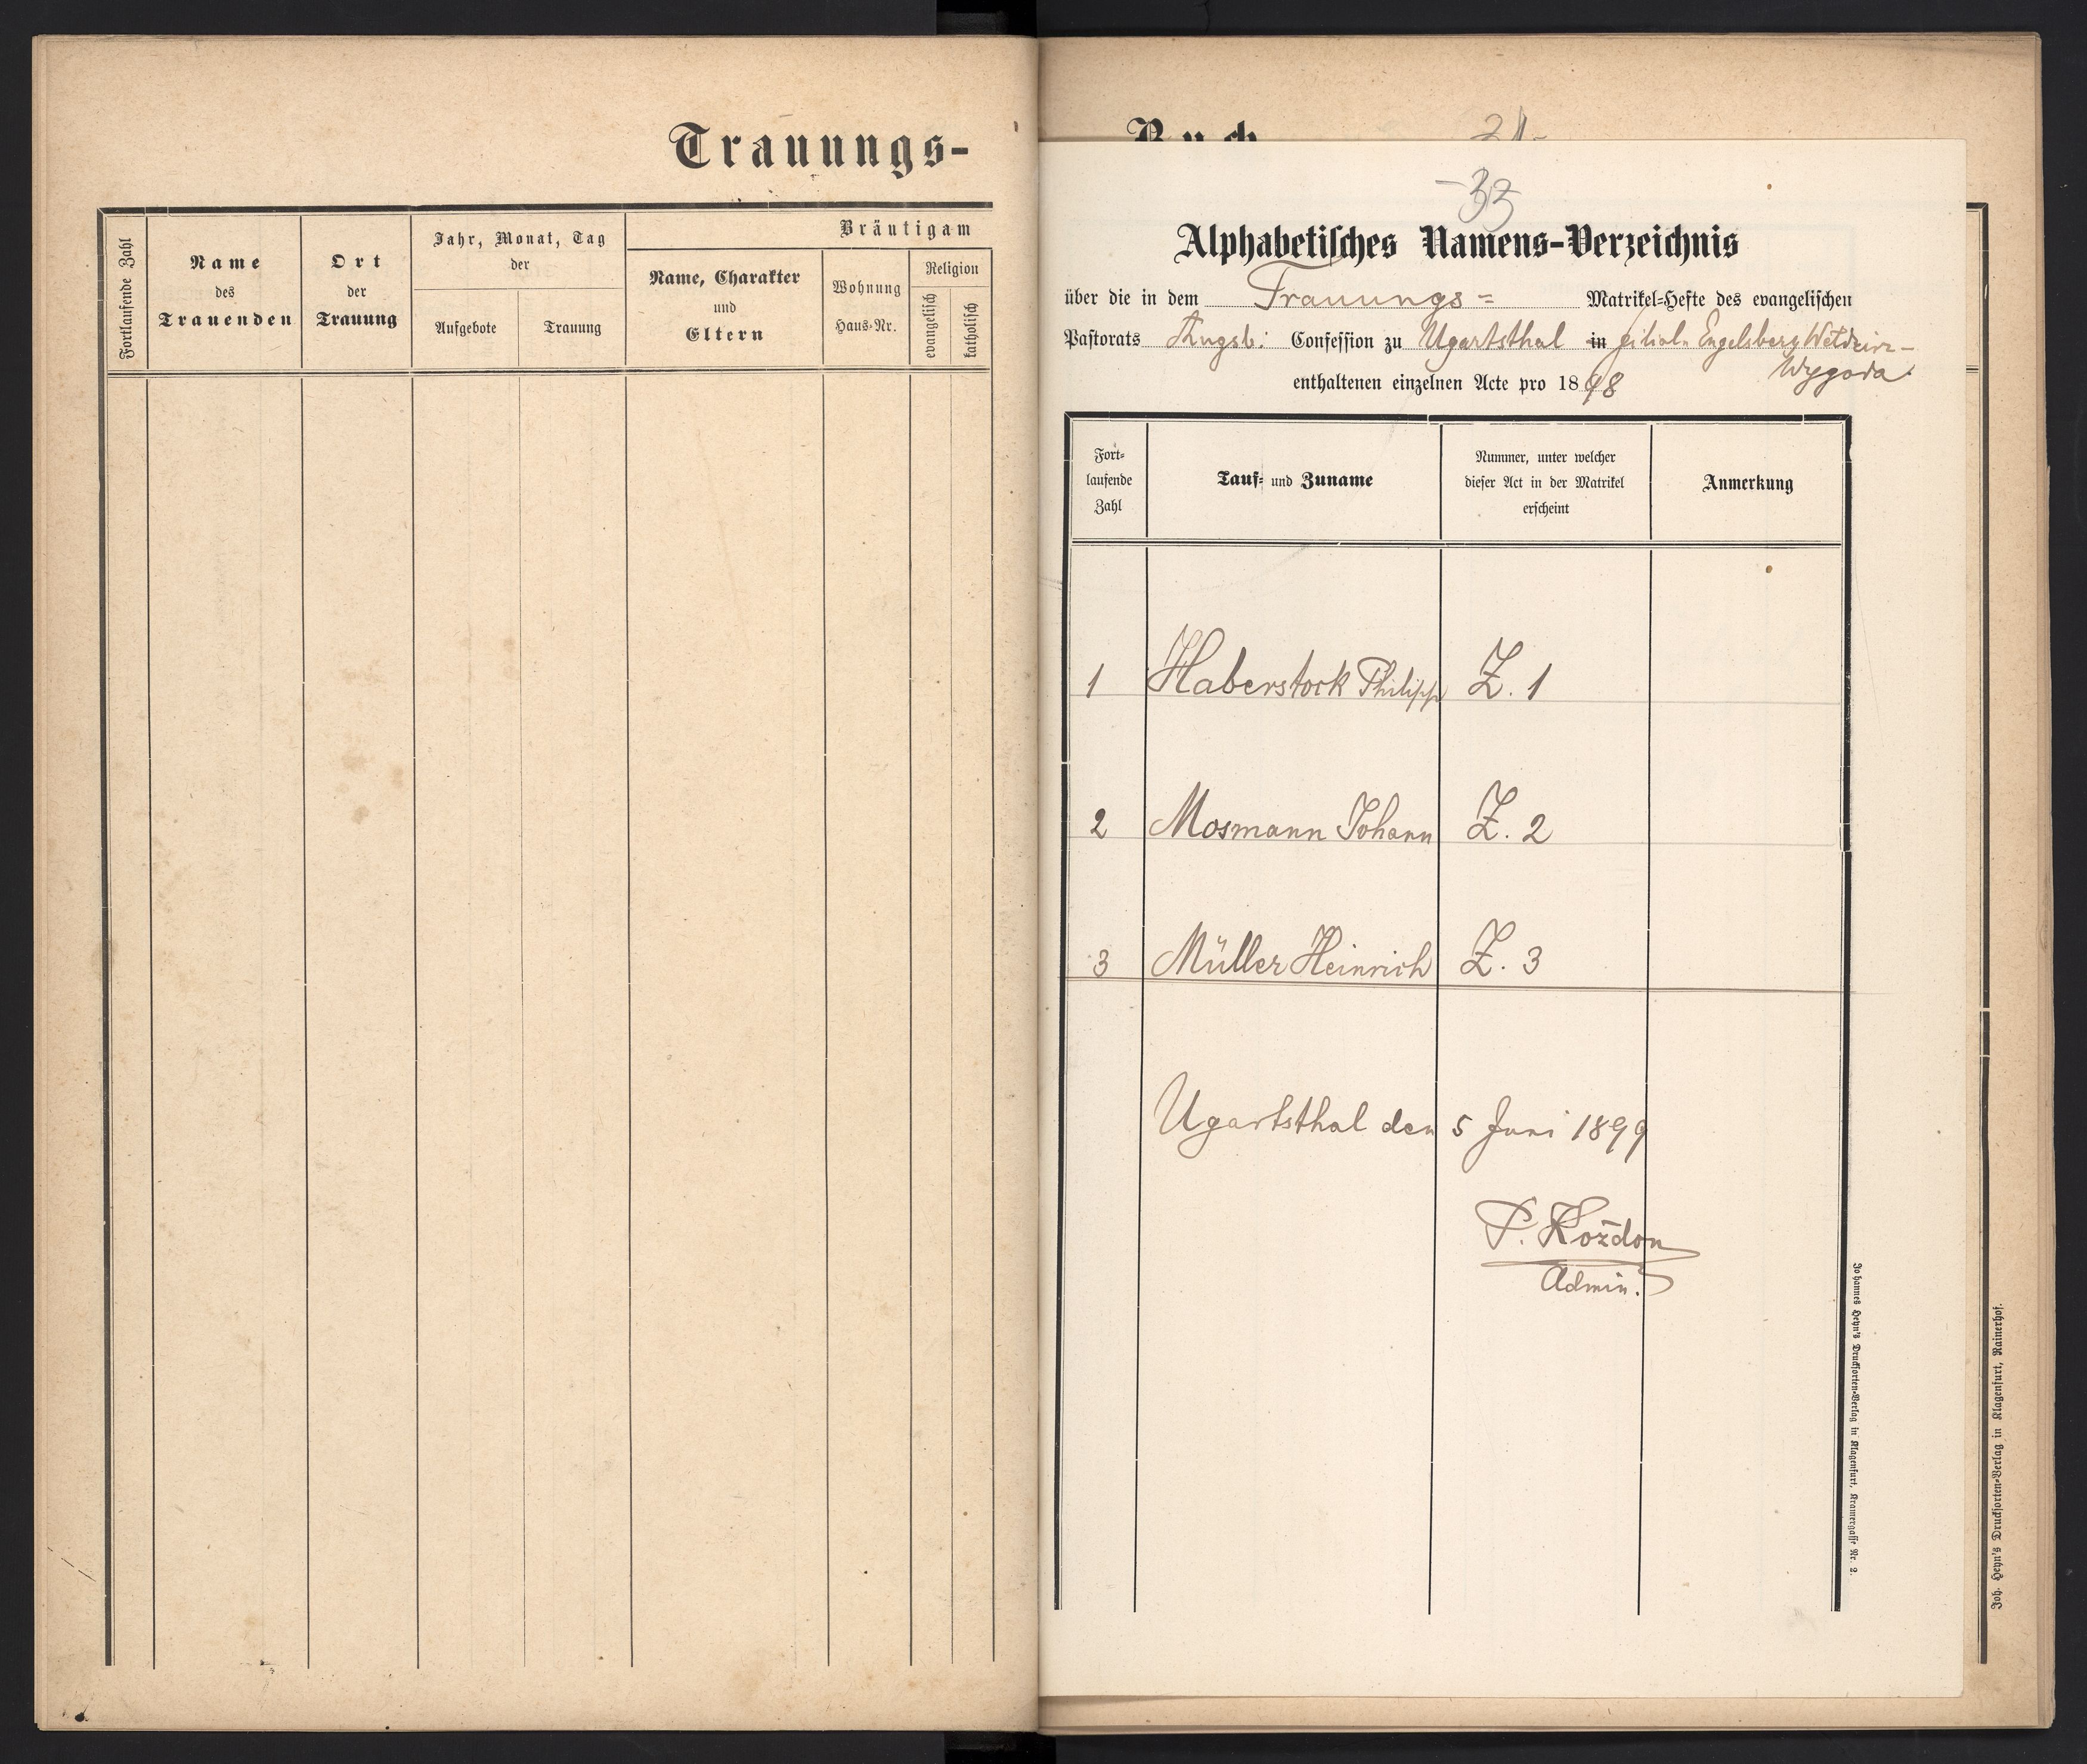 Trauungs-
Fortlaufende Zahl
Name
des
Trauenden
Ort
der
Trauung
Jahr, Monat, Tag
der
Aufgebote
Trauung
Bräutigam
Name, Charakter
und
Eltern
Wohnung
Haus-Nr.
Religion
evangelisch
katholisch
Buch
33
Alphabetisches Namens-Verzeichnis
über die in dem Trauungs= Matrikel-Hefte des evangelischen
Pastorats Augsb: Confession zu Ugartsthal in Filial. Engelsberg Weldzirz-
Wygoda
enthaltenen einzelnen Acte pro 1898
Fort-
laufende
Zahl
Tauf- und Zuname
Nummer, unter welcher
dieser Act in der Matrikel
erscheint
Anmerkung
1 Haberstock Philipp Z. 1
2 Mosmann Johann Z. 2
3 Müller Heinrich Z. 3
Ugartsthal den 5 Juni 1899
P. Kożdon
Admin.
Johannes Heyn's Drucksorten-Verlag in Klagenfurt, Kramergasse Nr. 2.
Joh. Heyn's Drucksorten-Verlag in Klagenfurt, Rainerhof.